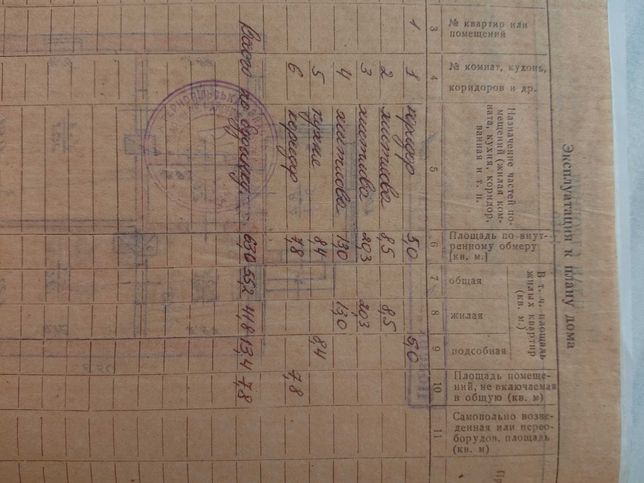 Эксплуатация к плану дома
№ квартир или
помещений
№ комнат, кухонь,
коридоров и др.
Назначение частей по-
мещений (жилая ком-
ната, кухня, коридор,
ванная и т. п.
Площадь по внут-
ренному обмеру
[кв. м.]
В т. ч. площадь
жилых квартир
(кв. м)
общая
жилая
подсобная
Площадь помеще-
ний, не включаемая
в общую (кв. м)
Самовольно возве-
денная или перео-
борудов. площадь
(кв. м)
3 4 5 6 7 8 9 10 11
1 1 коридор 5,0 5,0
2 житлова 8,5 8,5
3 житлова 20,3 20,3
4 житлова 13,0 13,0
5 кухня 8,4 8,4
6 коридор 7,8 7,8
Всього по будинку 63,0 55,2 41,8 13,4 7,8